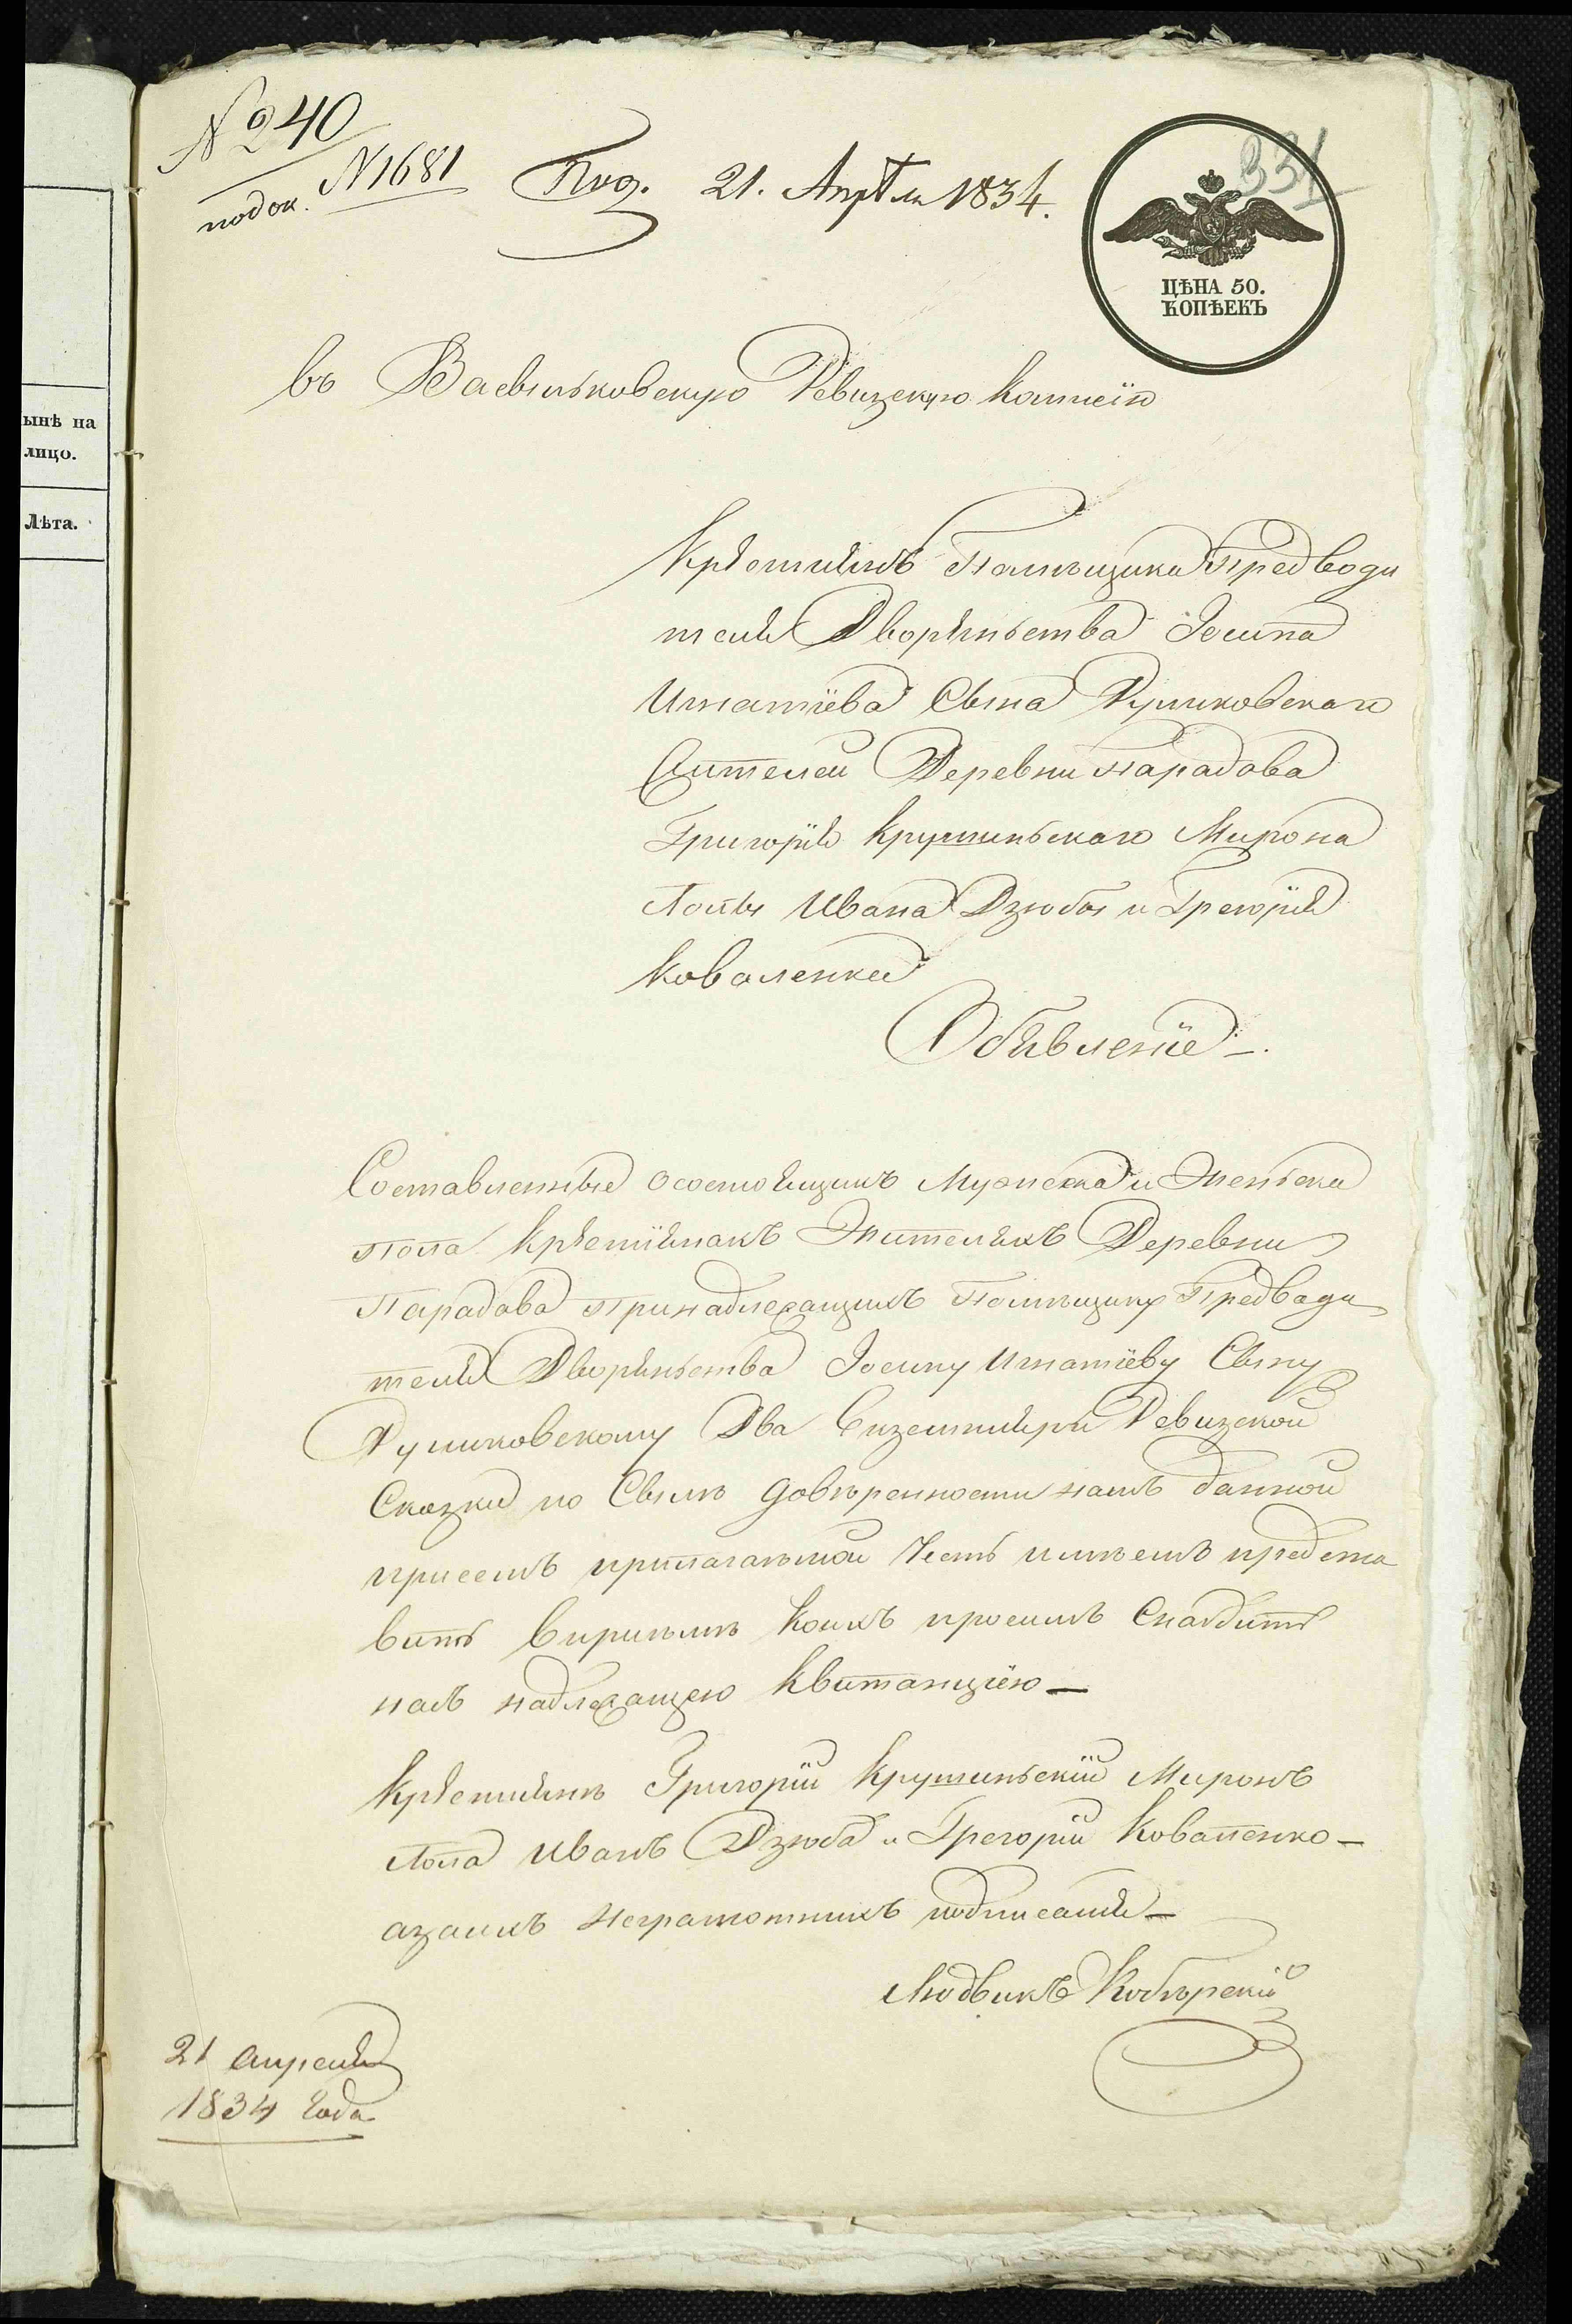 № 240
№ 1681
Под. 21. Апрѣля 1834.
331
ЦѢНА 50.
КОПѢЕКЪ
ынѣ на
лицо.
Лѣта.
Въ Васильковскую Ревизскую Комисію
Крестиянъ Помѣщика Предводи
теля Дворяньства Іосипа
Игнатіева Сына Руликовскаго
Жителей Деревни Парадова
Григорія Крушиньскаго Мирона
Лопы Ивана Дзюбы и Грегорія
Коваленка
Обявленіе —.
Составленные осостоящихъ Мужеска и Женьска
пола Крестіянахъ Жителяхъ Деревни
Парадова принадлежащихъ Помѣщику Предвади
телю Дворяньства Іосипу Игнатіеву Сыну
Руликовскому Два Екземпляри Ревизской
Сказки по Сылѣ довѣренности намъ данной
присемъ прилагаемой Честь имѣемъ предста
вить вприѣмѣ коихъ просимъ Снабдить
насъ надлежащею Квитанціею —
Крестиянѣ Григорій Крушиньскій Миронъ
Лопа Иванъ Дзюба и Грегорій Коваленко —
азаихъ Неграмотныхъ подписалъ —
Людвикъ
21 апреля
1834 года